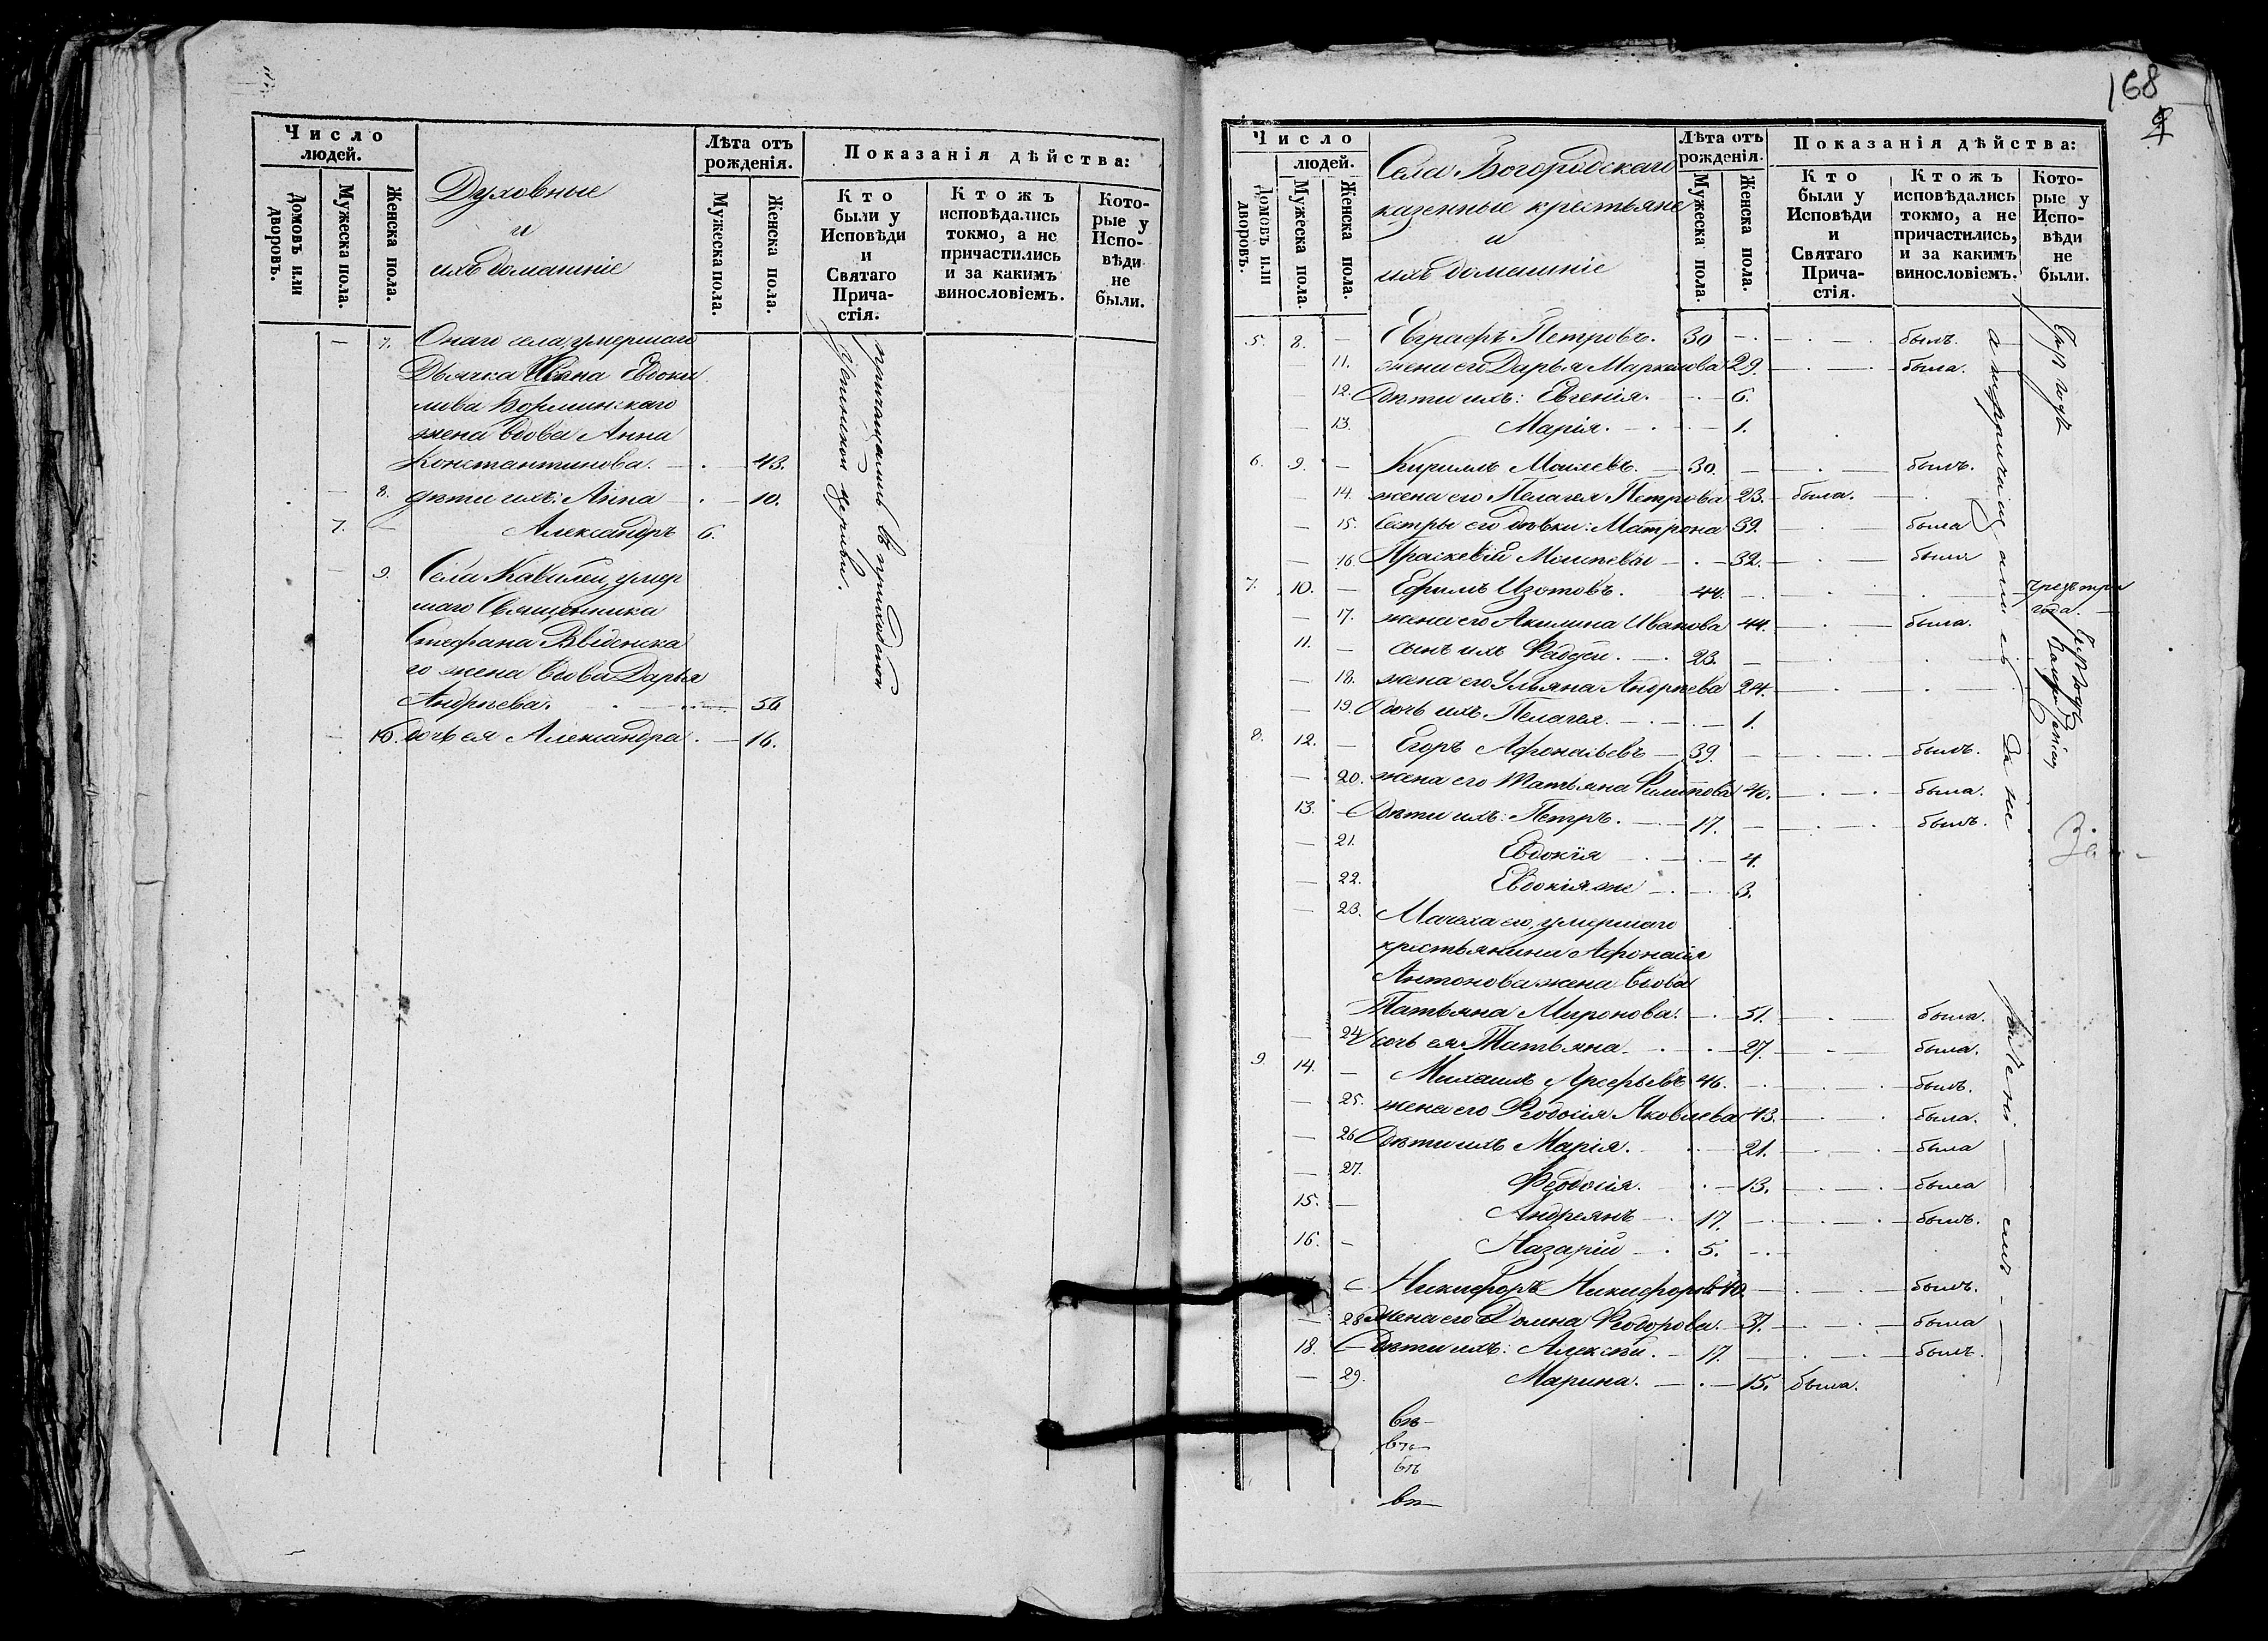 Число людей.
Домовъ или дворовъ.
Мужеска пола.
Женска пола.
Духовные
и
ихъ домашніе
Лѣта отъ рожденія.
Мужеска пола.
Женска пола.
Показанія дѣйства:
Кто были у Исповѣди и Святаго Причастія.
Ктожъ исповѣдались токмо, а не причастились и за какимъ винословіемъ.
Которые у Исповѣди не были.
— 7. Онаго села, умершаго
Дьячка Ивана Евдоки
мова Борминскаго
жена вдова Анна
Константинова. — 43.
— 8. дѣти ихъ: Анна — 10.
7. — Александръ 6.
— 9. Села умер
шаго Священника
Стефана Введенска
го жена вдова Дарья
Андреева. — 56
— 10. дочь ея Александра. — 16.
въ приходской
церкви.
168
9
Число людей.
Домовъ или дворовъ.
Мужеска пола.
Женска пола.
Села Богородскаго
казенные крестьяне
и
ихъ домашніе
Лѣта отъ рожденія.
Мужеска пола.
Женска пола.
Показанія дѣйства:
Кто были у Исповѣди и Святаго Причастія.
Ктожъ исповѣдались токмо, а не причастились, и за какимъ винословіемъ.
Которые у Исповѣди не были.
5. 8. — Евграфъ Петровъ. 30 — былъ.
— 11. жена его Дарья Маркелова 29. — была.
— 12. Дѣти ихъ: Евгенія. — 6.
— 13. Марія. — 1.
6. 9. — Кириллъ Моисеевъ. — 30. — былъ.
— 14. жена его Пелагея Петрова 23. — была.
— 15. Сестры его дѣвки: Матрона 39. — была
— 16. Праскевія Моисеева — 32. — была
7. 10. — Ефимъ Изотовъ. 44. — чрезъ три
года.
— 17. жена его Акилина Иванова 44. — была.
11. — сынъ ихъ Фадей. — 23. —
— 18. жена его Ульяна Андреева 24. —
— 19. дочь ихъ Пелагея. — 1.
8. 12. — Егоръ Афонасьевъ — 39. — былъ.
— 20. жена его Татьяна Филипова 40. — была.
13. — Дѣти ихъ: Петръ. — 17. — былъ.
— 21. Евдокія — 4.
— 22. Евдокія же — 3.
— 23. Мачеха его, умершаго
крестьянина Афонасія
Антонова жена вдова
Татьяна Миронова. — 51. — была.
— 24. дочь ея Татьяна. — 27. — была.
9. 14. — Михаилъ Арефьевъ 46. — былъ.
— 25. жена его Феодосія Яковлева 43. — была.
— 26. Дѣти ихъ Марія. — 21. — была
— 27. Феодосія. — 13. — была
15. — Андреянъ — 17. — былъ.
16. — Назарій — 5. —
— Никифоръ Никифоровъ 40. — былъ.
— 28. Жена его Домна Феодорова. — 37. — была
18. — Дѣти ихъ: Алексѣй. — 17. — былъ.
— 29. Марина. — 15. была.